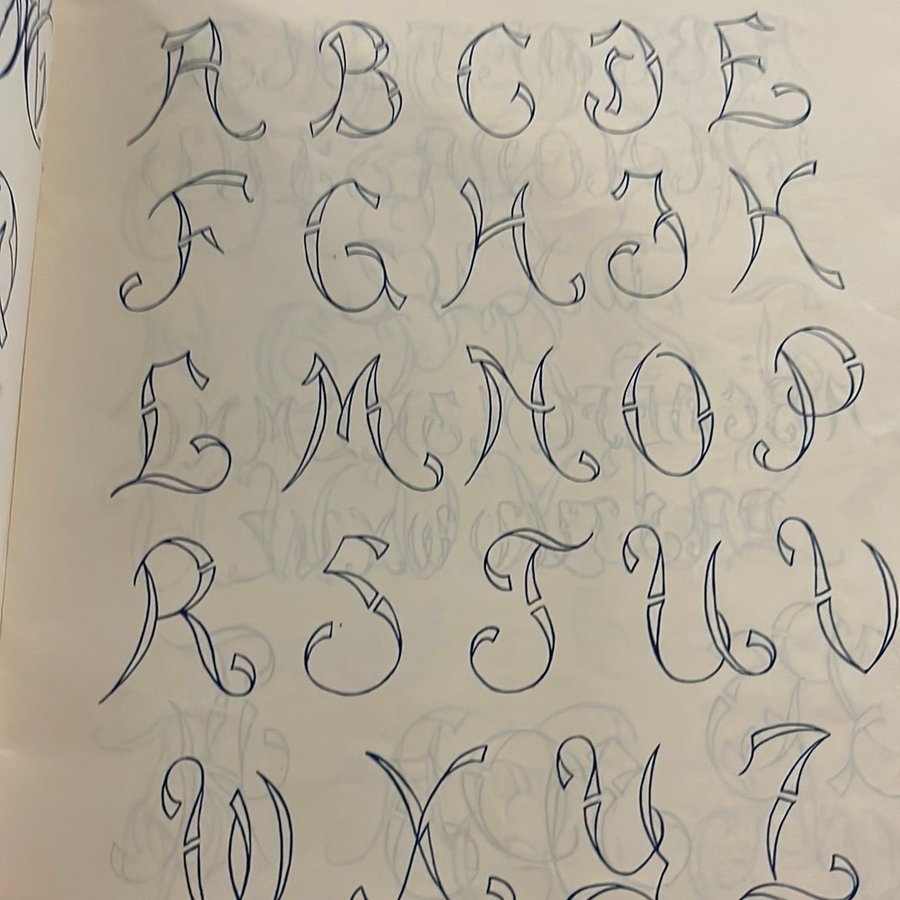 A B C D E
F G H J K
L M N O P
R S T U V
W X Y Z